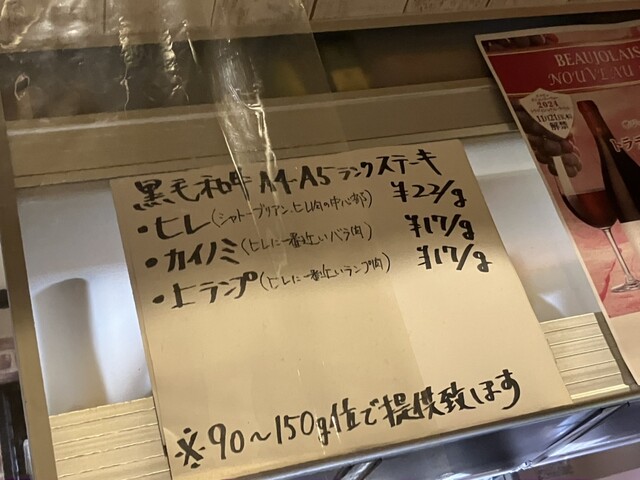 黒毛和牛 A4-A5ランクステーキ
・ヒレ(シャトーブリアン、ヒレ肉の中心部) ¥22/g
・カイノミ(ヒレに一番近いバラ肉) ¥17/g
・上ランプ(ヒレに一番近いランプ肉) ¥17/g
※90〜150g位で提供致します
BEAUJOLAIS
NOUVEAU
2024
11/21(木)
解禁